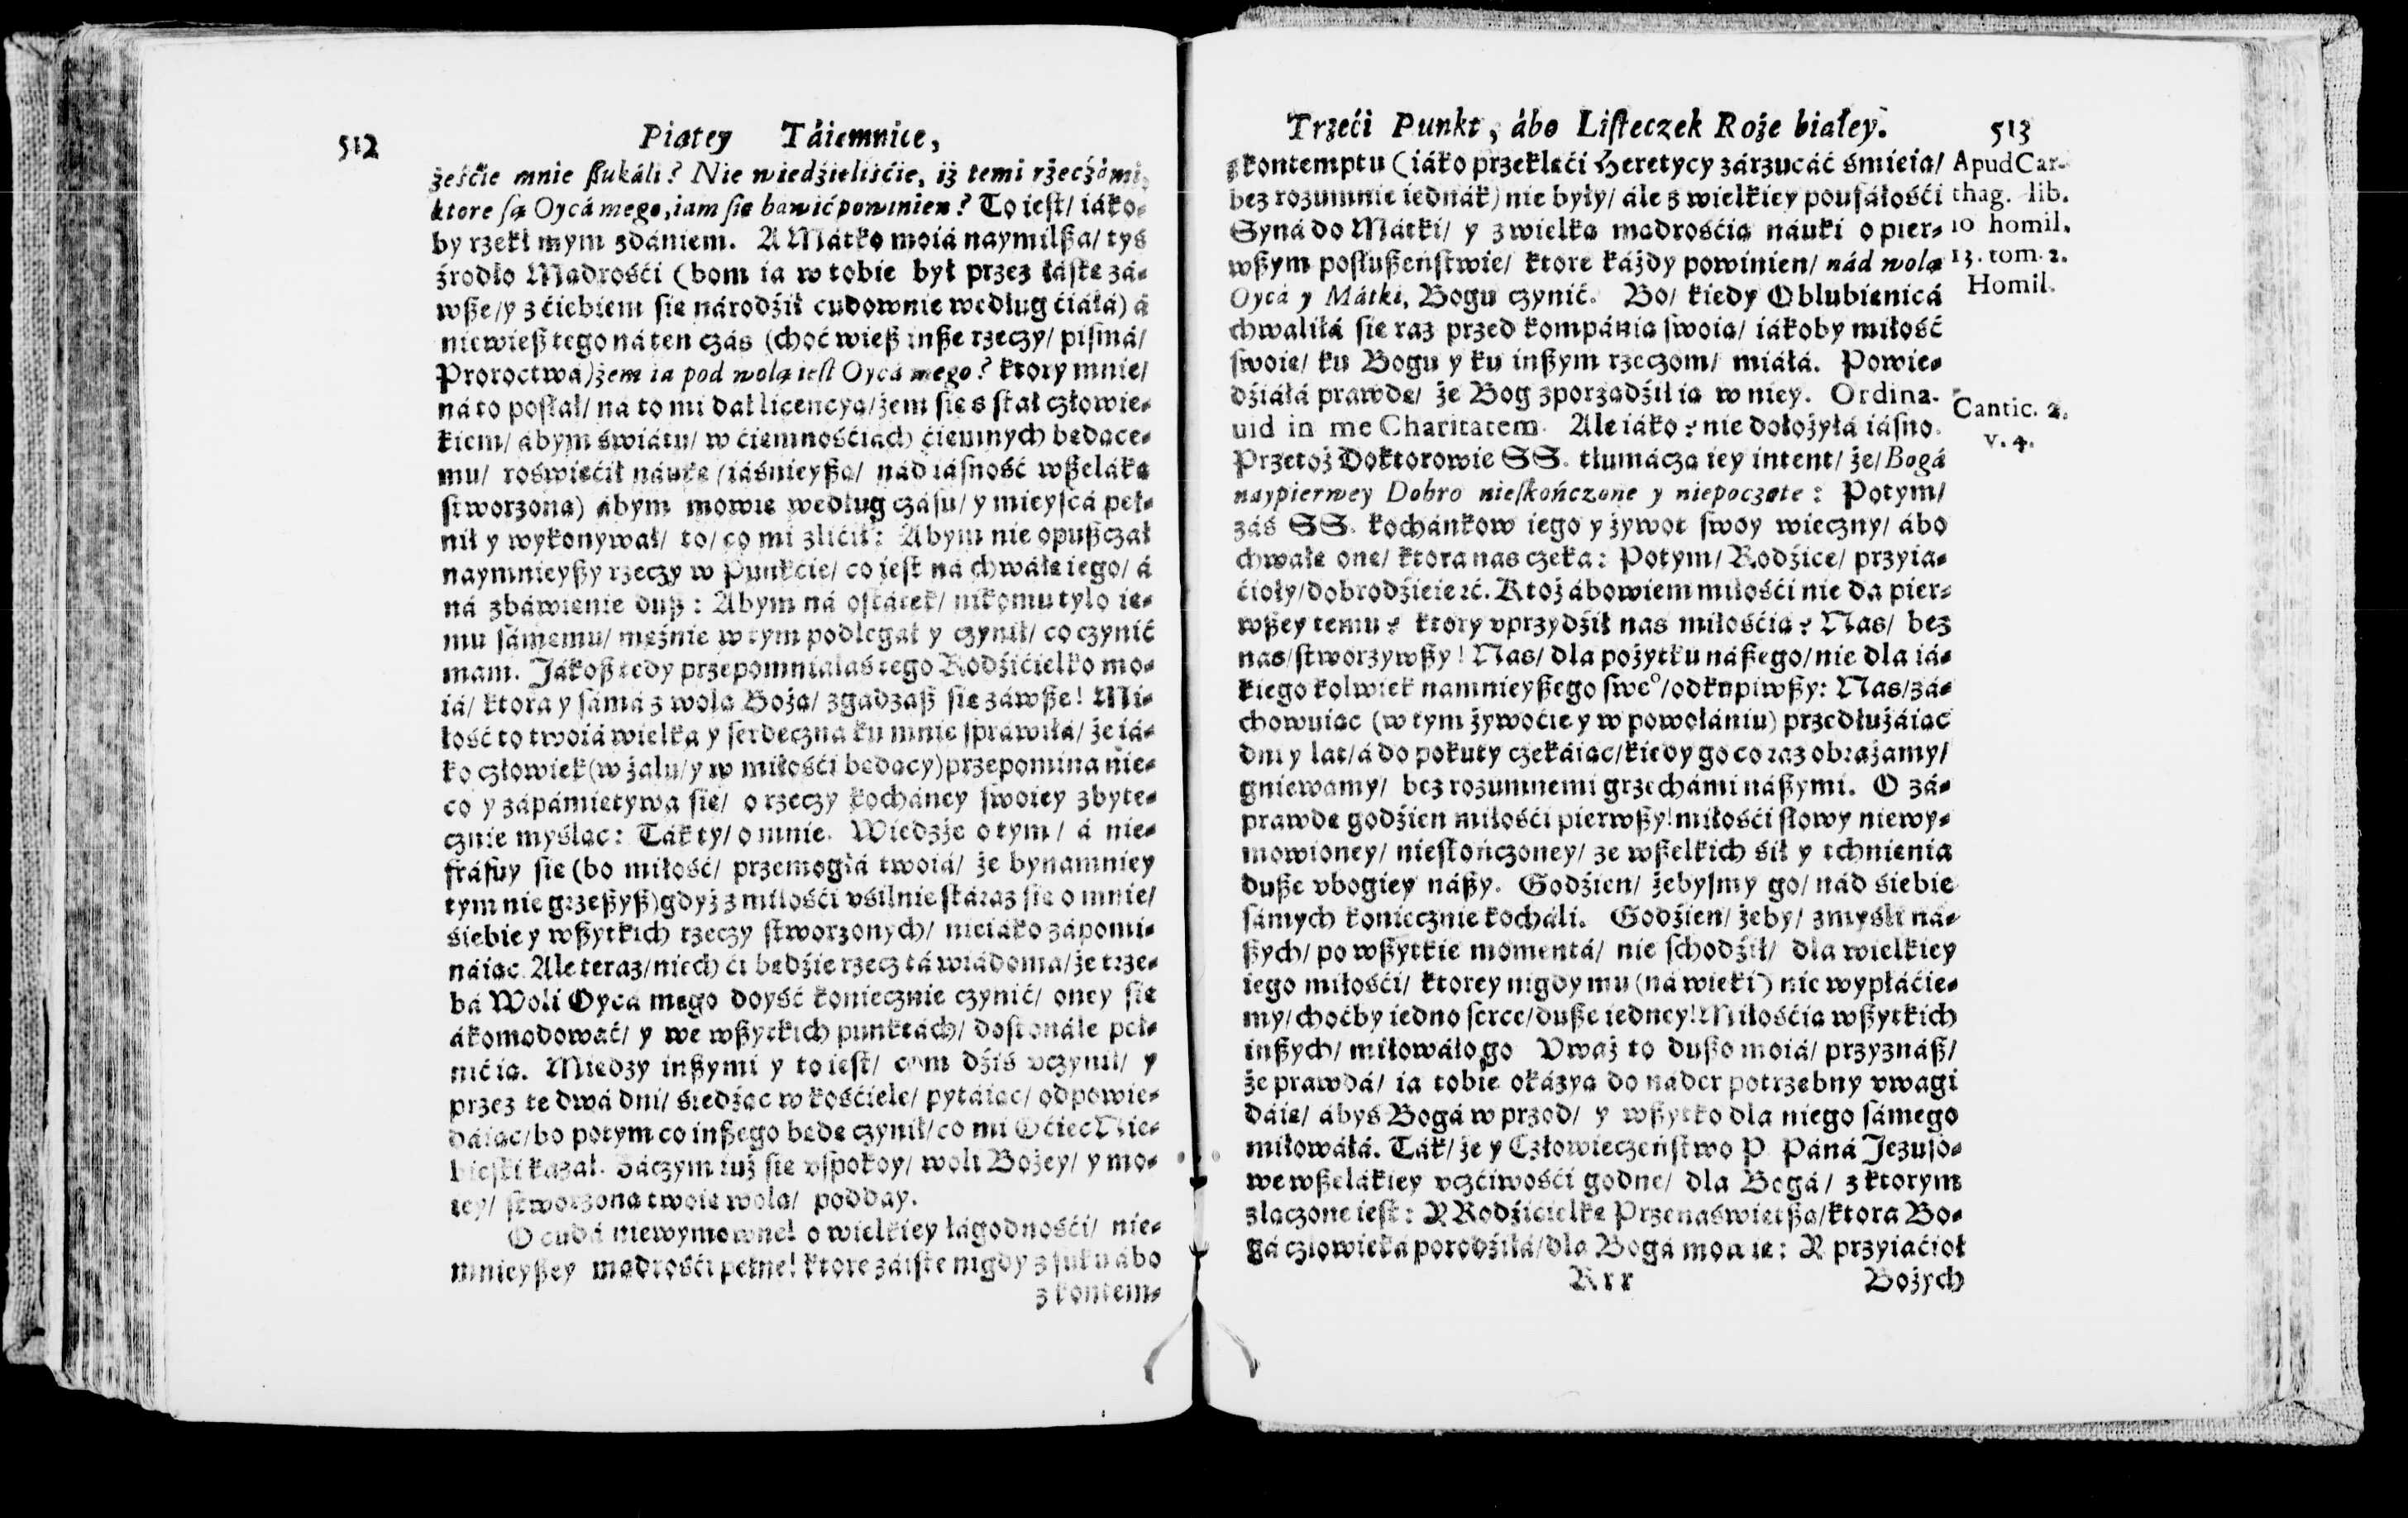 512
Piątey Táiemnice,
żeśćie mnie ßukáli? Nie wiedźieliśćie, iż temi rżecżámi,
ktore są Oycá mego, iam się bawić powinien? To iest/ iáko-
by rzekł mym zdániem. A Mátko moiá naymilßa/ tyś
źrodło Mądrośći (bom ia w tobie był przez łáskę zá-
wße/ y z ćiebiem się národźił cudownie według ćiáłá) á
niewieß tego ná ten czás (choć wieß inße rzeczy/ pismá/
Proroctwá) żem ia pod wolą iest Oycá mego? ktory mnie/
ná to posłał/ ná to mi dał licencyą/ żem się sstał człowie-
kiem/ ábym świátu/ w ćiemnośćiách ćiemnych będące-
mu/ roświećił náukę (iáśnieyßą/ nád iásność wßeláką
stworzoną) ábym mowię według czásu/ y mieyscá peł-
nił y wykonywał/ to/ co mi zlićił: Abym nie opußczał
naymnieyßy rzeczy w Punkćie/ co iest ná chwáłę iego/ á
ná zbáwienie duß: Abym ná ostátek/ nikomu tylo ie-
mu sámemu/ mężnie w tym podlegał y czynił/ co czynić
mam. Jákoß tedy przepomniáłaś tego Rodźićielko mo-
iá/ ktora y sámá z wolą Bożą/ zgadzaß się záwße! Mi-
łość to twoiá wielka y serdeczna ku mnie spráwiłá/ że iá-
ko człowiek (w żalu/ y w miłośći będący) przepomina nie-
co y zápámiętywa się/ o rzeczy kocháney swoiey zbyte-
cznie myśląc: Ták ty/ o mnie. Wiedzże o tym/ á nie-
frásuy się (bo miłość/ przemogłá twoiá/ że bynamniey
tym nie grzeßyß) gdyż z miłośći vśilnie stáraz się o mnie/
siebie y wßytkich rzeczy stworzonych/ nieiáko zápomi-
náiąc. Ale teraz/ niech ći będźie rzecz tá wiádoma/ że trze-
bá Woli Oycá mego dość koniecznie czynić/ oney się
ákomodowáć/ y we wßytkich punktách/ doskonále peł-
nić ią. Między inßymi y to iest/ com dźiś vczynił/ y
przez te dwá dni/ siedźąc w kośćiele/ pytáiąc/ odpowie-
dáiąc/ bo potym co inßego będę czynił/ co mi Oćiec Nie-
bieski kazał. Záczym iuż się vspokoy/ woli Bożey/ y mo-
iey/ stworzoną twoię wolą/ podday.
O cudá niewymowne! o wielkiey łágodnośći/ nie-
mnieyßey mądrośći pełne! ktore záiste nigdy z fuku ábo
z kontem-
Trzeći Punkt, ábo Listeczek Roże białey.
513
z kontemptu (iáko przeklęći Heretycy zárzucáć śmieią/
bez rozumnie iednák) nie były/ ále z wielkiey poufáłośći
Syná do Mátki/ y z wielką mądrośćią náuki o pier-
wßym posłußeństwie/ ktore káżdy powinien/ nád wolą
Oycá y Mátki, Bogu czynić. Bo/ kiedy Oblubienicá
chwaliłá się raz przed kompánią swoią/ iákoby miłość
swoię/ ku Bogu y ku inßym rzeczom/ miáłá. Powie-
dźiáłá prawdę/ że Bog zporządźił ią w niey. Ordina-
uid in me Charitatem. Ale iáko? nie dołożyłá iásno.
Przetoż Doktorowie SS. tłumáczą iey intent/ że/ Bogá
naypierwey Dobro nieskończone y niepoczęte: Potym/
záś SS. kochánkow iego y żywot swoy wieczny/ ábo
chwałę onę/ ktora nas czeka: Potym/ Rodźice/ przyia-
ćioły/ dobrodźieie ꝛć. Ktoż ábowiem miłośći nie da pier-
wßey temu? ktory vprzydźił nas miłośćią? Nas/ bez
nas/ stworzywßy! Nas/ dla pożytku náßego/ nie dla iá-
kiego kolwiek namnieyßego swe°/ odkupiwßy: Nas/ zá-
chowuiąc (w tym żywoćie y w powołániu) przedłużáiąc
dni y lat/ á do pokuty czekáiąc/ kiedy go co raz obrażamy/
gniewamy/ bez rozumnemi grzechámi náßymi. O zá-
prawdę godźien miłośći pierwßy! miłośći słowy niewy-
mowioney/ nieskończoney/ ze wßelkich śił y tchnienia
duße vbogiey náßy. Godźien/ żebysmy go/ nád siebie
sámych koniecznie kocháli. Godźien/ żeby/ z myśli ná-
ßych/ po wßytkie momentá/ nie schodźił/ dla wielkiey
iego miłośći/ ktorey nigdy mu (ná wieki) nie wypłáćie-
my/ choćby iedno serce/ duße iedney! Miłośćią wßytkich
inßych/ miłowáło go Vważ to dußo moiá/ przyznáß/
że prawdá/ ia tobie okázyą do náder potrzebny vwagi
dáię/ ábyś Bogá w przod/ y wßytko dla niego sámego
miłowáłá. Ták/ że y Człowieczeństwo P. Páná Jezuso-
we wßelákiey vczćiwośći godne/ dla Bogá/ z ktorym
złączone iest: Y Rodźićielkę Przenaświętßą/ ktora Bo-
gá człowieká porodźiłá/ dla Bogá mowię: Y przyiaćioł
Rrr Bożych
Apud Car-
thag. lib.
10 homil.
13. tom. 2.
Homil.
Cantic. 2.
v. 4.